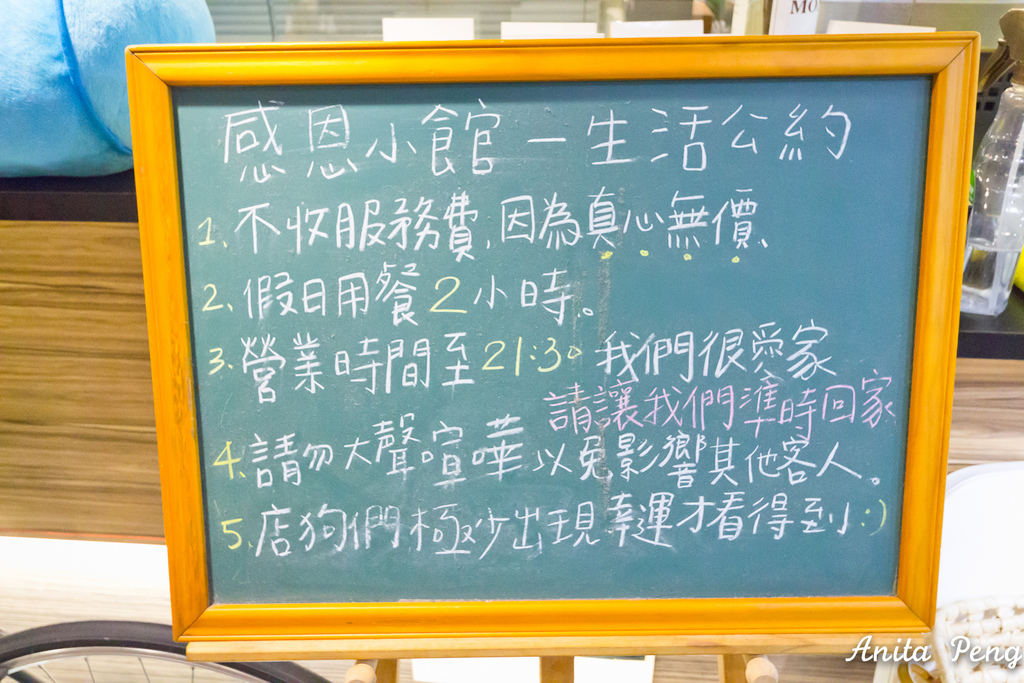 MO
感恩小館－生活公約
1. 不收服務費，因為真心無價、
2. 假日用餐2小時。
3. 營業時間至21:30 我們很愛家
請讓我們準時回家
4. 請勿大聲喧嘩以免影響其他客人。
5. 店狗們極少出現幸運才看得到 :)
Anita Peng